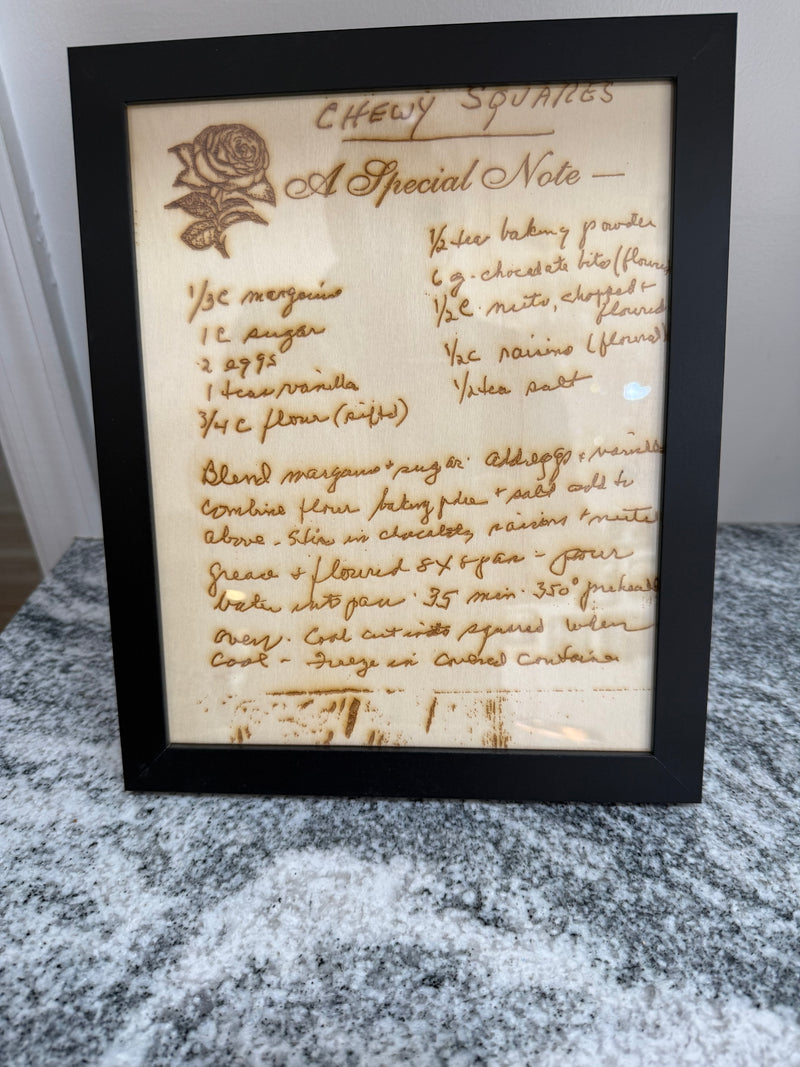 CHEWY SQUARES
A Special Note —
1/3 C margarine
1 C sugar
2 eggs
1 teas vanilla
3/4 C flour (sifted)
1/2 tea baking powder
6 g. chocolate bits (floured
1/2 C. nuts, chopped +
floured
1/2 C raisins (floured)
1/2 tea salt
Blend margarine + sugar. add eggs + vanilla
Combine flour baking + salt add to
above. Stir in chocolate, raisins + nuts
grease + floured 8 X 8 pan - pour
batter into pan. 35 min. 350° preheated
oven. Cool cut into squares when
cool - Freeze in covered container